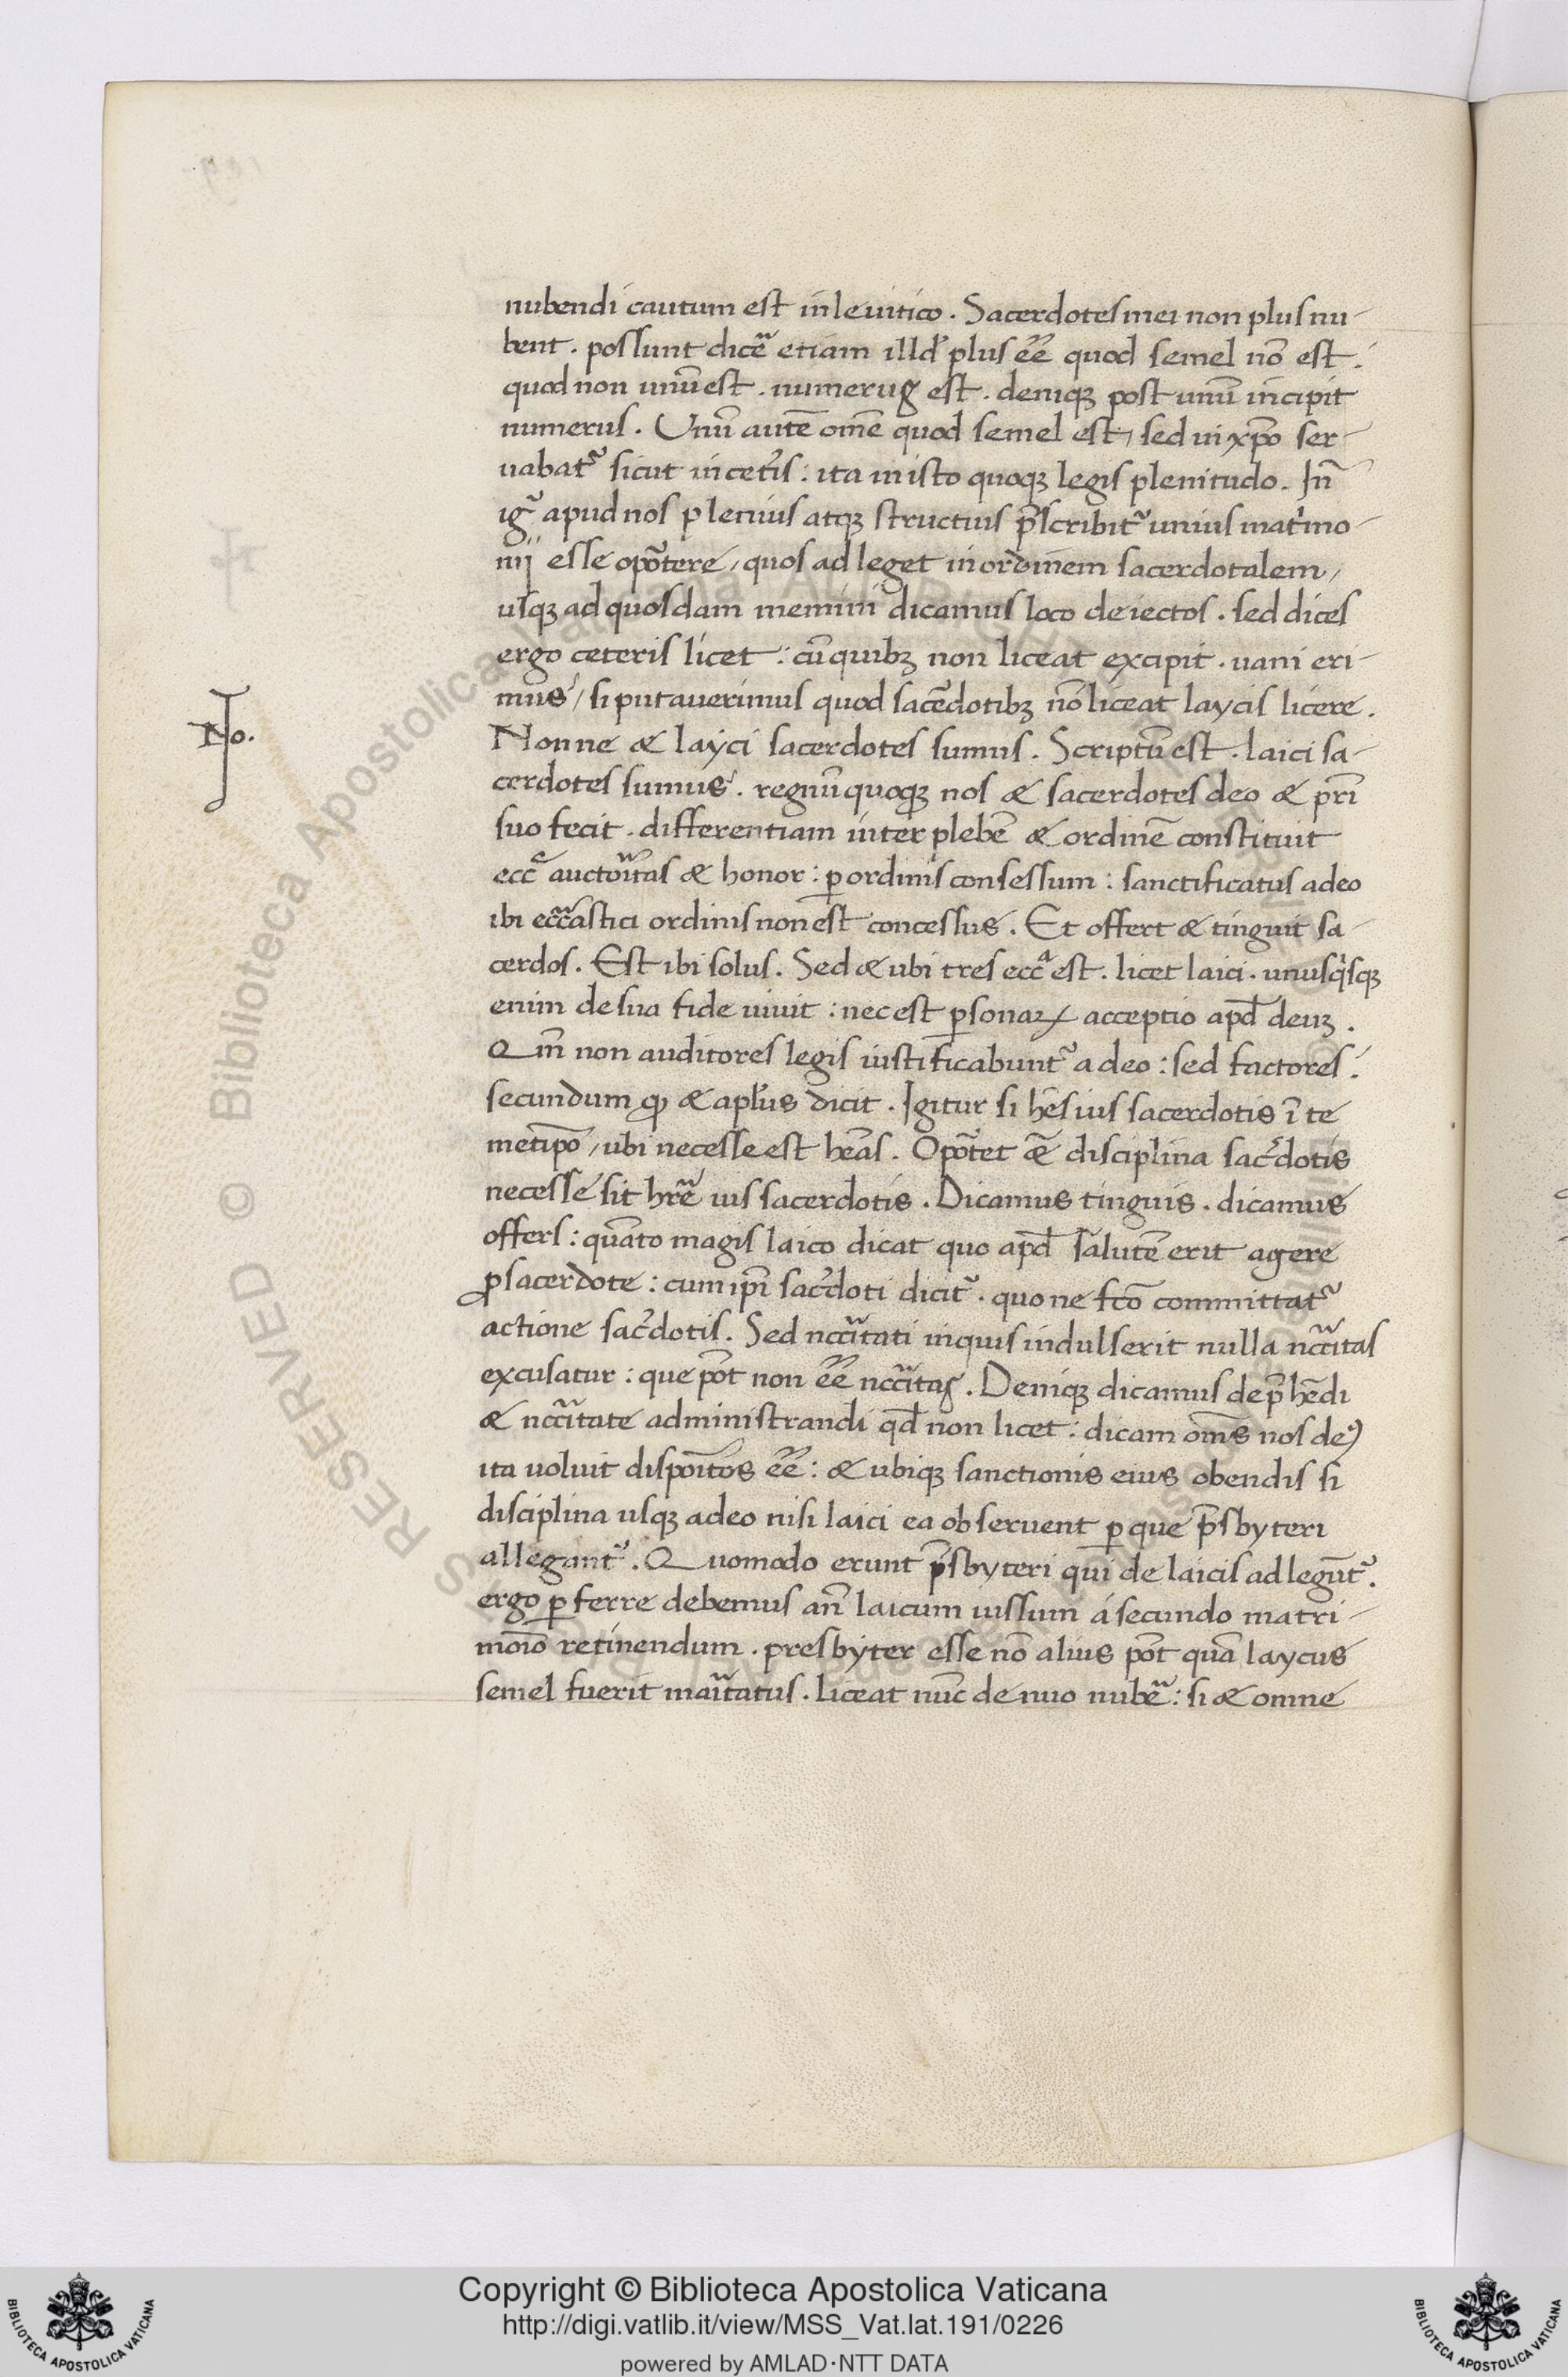 nubendi cautum est in leuitico. Sacerdotes mei non plus nu-
bent. possunt dicẽ etiam illđ plus eẽ quod semel nõ est:
quod non unũ est. numerus est. deniqꝫ post unũ incipit
numerus. Unũ autẽ omẽ quod semel est, sed in xp̃o ser-
uabat᷑ sicut in cet̉is: ita in isto quoqꝫ legis plenitudo. Iñ
ig̃ apud nos plenius atqꝫ structius p̃scribit᷑ unius mat̉mo-
nij esse opõtere, quos adleget in ordinem sacerdotalem,
usqꝫ ad quosdam memini dicamus loco deiectos. sed dices
ergo ceteris licet: cũ quibꝫ non liceat excipit. uani eri-
mus, si putauerimus quod sac̃edotibꝫ nõ liceat laycis licere.
No.
Nonne & layci sacerdotes sumus. Scriptũ est. laici sa-
cerdotes sumus. regnũ quoqꝫ nos & sacerdotes deo & pr̃i
suo fecit. differentiam inter plebẽ & ordinẽ constituit
ecc̃ auctor̃itas & honor: ꝑ ordinis consessum: sanctificatus adeo
ibi ecc̃astici ordinis non est concessus. Et offert & tinguit sa-
cerdos. Est ibi solus. Sed & ubi tres ecc̃a est. licet laici. unusq̉sqꝫ
enim de sua fide uiuit: nec est ꝑsonaꝝ acceptio apđ deuꝫ.
Qm̃ non auditores legis iustificabunt᷑ a deo: sed factores:
secundum ꝙ & apl̃us dicit. Igitur si hẽs ius sacerdotis ĩ te
metip̃o, ubi necesse est heãs. Opõtet &̃ disciplina sac̉dotis
necesse sit hr̃e ius sacerdotis. Dicamus tinguis. dicamus
offers: quãto magis laico dicat quo apđ salutẽ erit agere
ꝓ sacerdote: cum ip̃i sac̉doti dicit᷑. quo ne fc̃o committat᷑
actione sac̉dotis. Sed ncc̃itati inquis indulserit nulla ncc̃itas
excusatur: que põt non eẽ ncc̃itas. Deniqꝫ dicamus dep̃hẽdi
& ncc̃itate administrandi qđ non licet: dicam om̃s nos deꝰ
ita uoluit dispoĩtos eẽ: & ubiqꝫ sanctionis eius obendis si
disciplina usqꝫ adeo nisi laici ea obseruent ꝑ que p̃sbyteri
allegant᷑. Quomodo erunt p̃sbyteri qui de laicis adlegũt᷑.
ergo ꝑferre debemus añ laicum iussum á secundo matri-
moĩo retinendum. presbyter esse nõ alius põt quã laycus
semel fuerit mar̃itatus. liceat nũc denuo nubẽ: si & omne
Copyright © Biblioteca Apostolica Vaticana
http://digi.vatlib.it/view/MSS_Vat.lat.191/0226
powered by AMLAD·NTT DATA
BIBLIOTECA APOSTOLICA VATICANA
BIBLIOTECA APOSTOLICA VATICANA